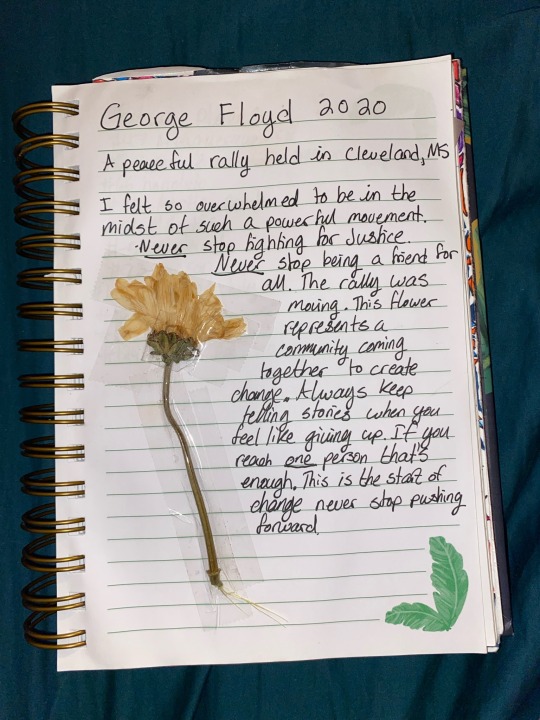 George Floyd 2020
A peaceful rally held in Cleveland, MS
I felt so overwhelmed to be in the
midst of such a powerful movement.
Never stop fighting for Justice.
Never stop being a friend for
all. The rally was
moving. This flower
represents a
community coming
together to create
change. Always keep
telling stories when you
feel like giving up. If you
reach one person that's
enough. This is the start of
change never stop pushing
forward.